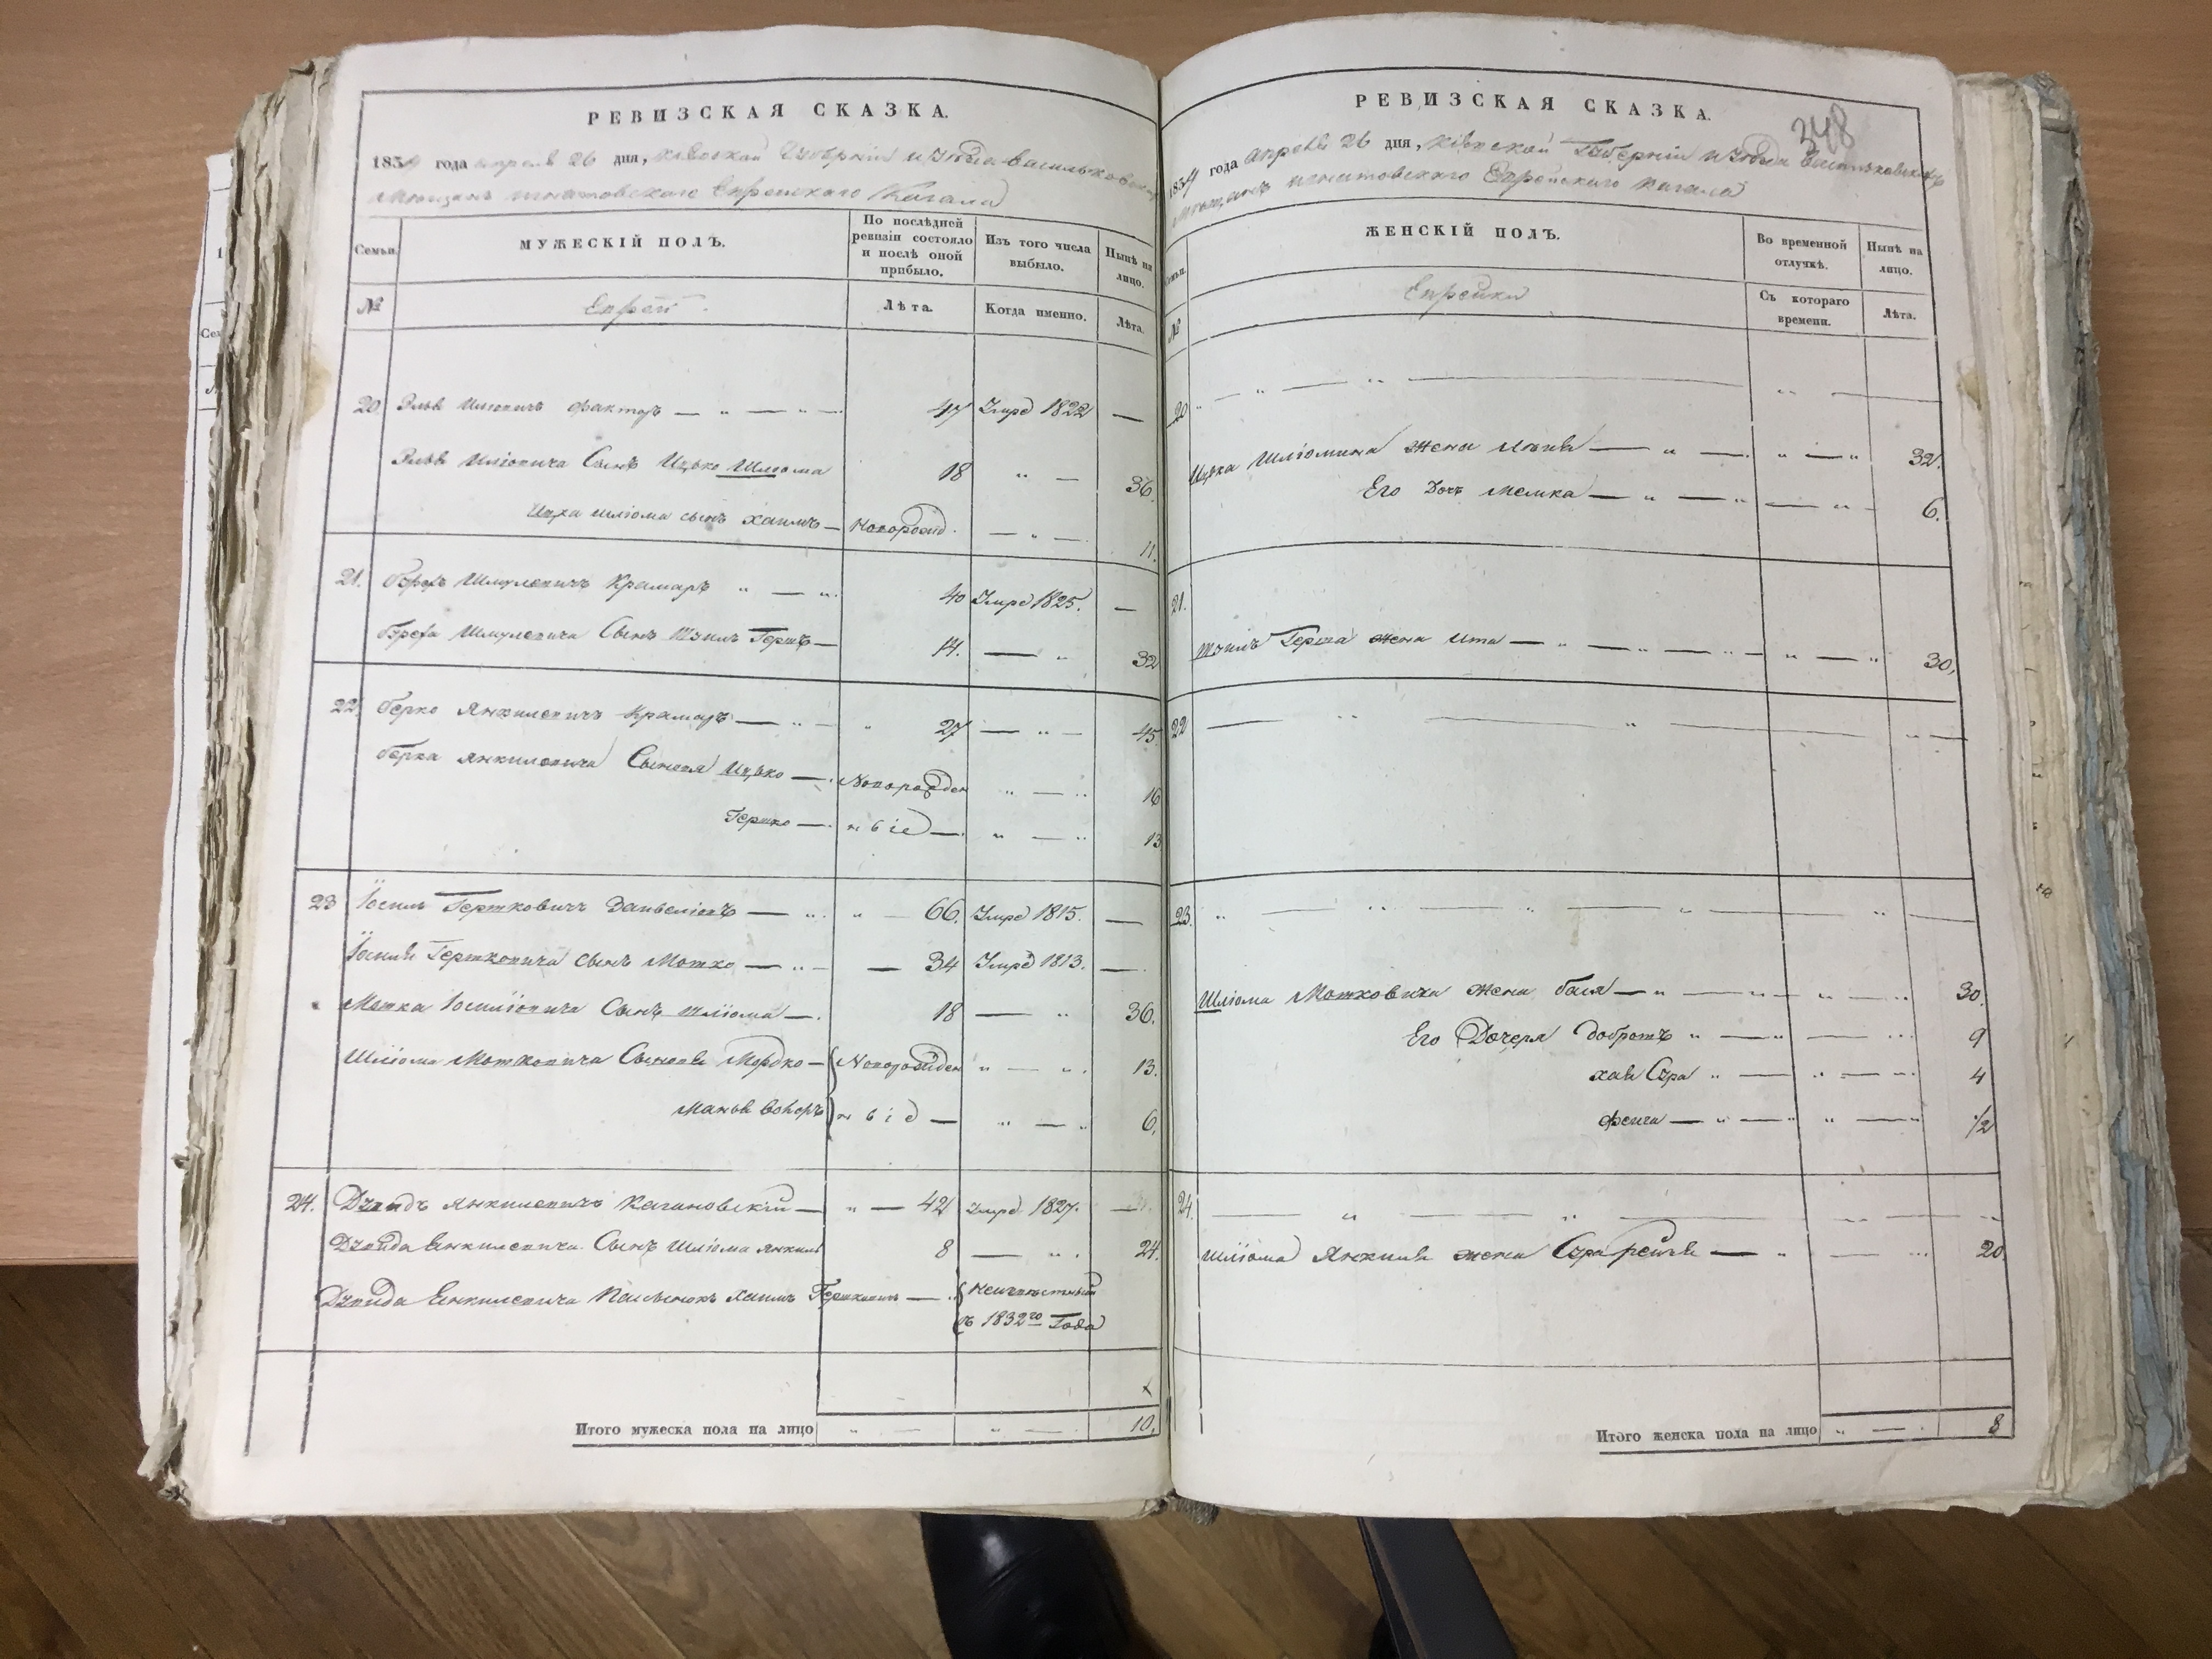 РЕВИЗСКАЯ СКАЗКА.
1834 года апреля 26 дня, Кіевской Губерніи уезда Васильковскаго
Мещанъ Игнатовскаго Еврейскаго Кагала
Семьи.
МУЖЕСКІЙ ПОЛЪ.
По послѣдней ревизіи состояло и послѣ оной прибыло.
Изъ того числа выбыло.
Нынѣ на лицо.
№
Евреи
Лѣта.
Когда именно.
Лѣта.
20 Эльв Шліовичъ Факторъ — „ — „ — 47 Умре 1822 —
Эльв Шліовича Сынъ Ицько Шліома 18 „ — 36.
Ицка Шліома сынъ Хаимъ — Новорожд. — „ — 11.
21. Шмулевичъ Крамаръ „ — „ 40 Умре 1825. —
Шмулевича Сынъ Гершъ — 14. — „ 32
22. Берко Янкилевичъ Крамаръ — „ — „ 27 — „ — 45
Берка Янкилевича Сыновя Ицько — Новорожден „ — „ 16
Гершко — н ы іе — „ — „ 13
23 Іосиль Гершковичъ — „ „ — 66. Умре 1815. —
Іосиля Гершковича сынъ Мошко — „ — — 34 Умре 1813. —
Мошка Іосиліовича Сынъ Шліома — 18 — „ 36.
Шліома Мошковича Сыновя Мордко — Новорожден „ — „ 13.
н ы іе — „ — „ 6.
24. Янкилевичъ Кагановскій — „ — 42 Умре 1827. —
Енкилевича Сынъ Шліома Янкиль 8 — „ 24.
Енкилевича Пасынокъ Хаимъ Гершковичъ — Неизвестный
съ 1832го Года
Итого мужеска пола на лицо „ — „ — 10.
РЕВИЗСКАЯ СКАЗКА.
348
1834 года апреля 26 дня, Кіевской Губерніи уезда Васильковскаго
Мещанъ Игнатовскаго Еврейскаго Кагала
Семьи.
ЖЕНСКІЙ ПОЛЪ.
Во временной отлучкѣ.
Нынѣ на лицо.
№
Еврейки
Съ котораго времени.
Лѣта.
20 „ — „ — „ —
Ицка Шліомина жена — „ — „ — „ 32.
Его Дочъ — „ — „ — „ — 6.
21.
Герша жена Ита — „ — „ — „ — „ — „ 30.
22 — „ — „ — „ —
23. „ — „ — „ — „ — „ —
Шліома Мошковича жена Бася — „ — „ — „ — „ 30.
Его Дочеря Добришъ „ — „ — „ 9
Хая Сура „ — „ — „ 4
Фейга — „ — „ „ — „ 1/2
24. — „ — „ — „
Шліома Янкиля жена Сура Рейзя — „ — „ 20.
Итого женска пола на лицо „ — . 8